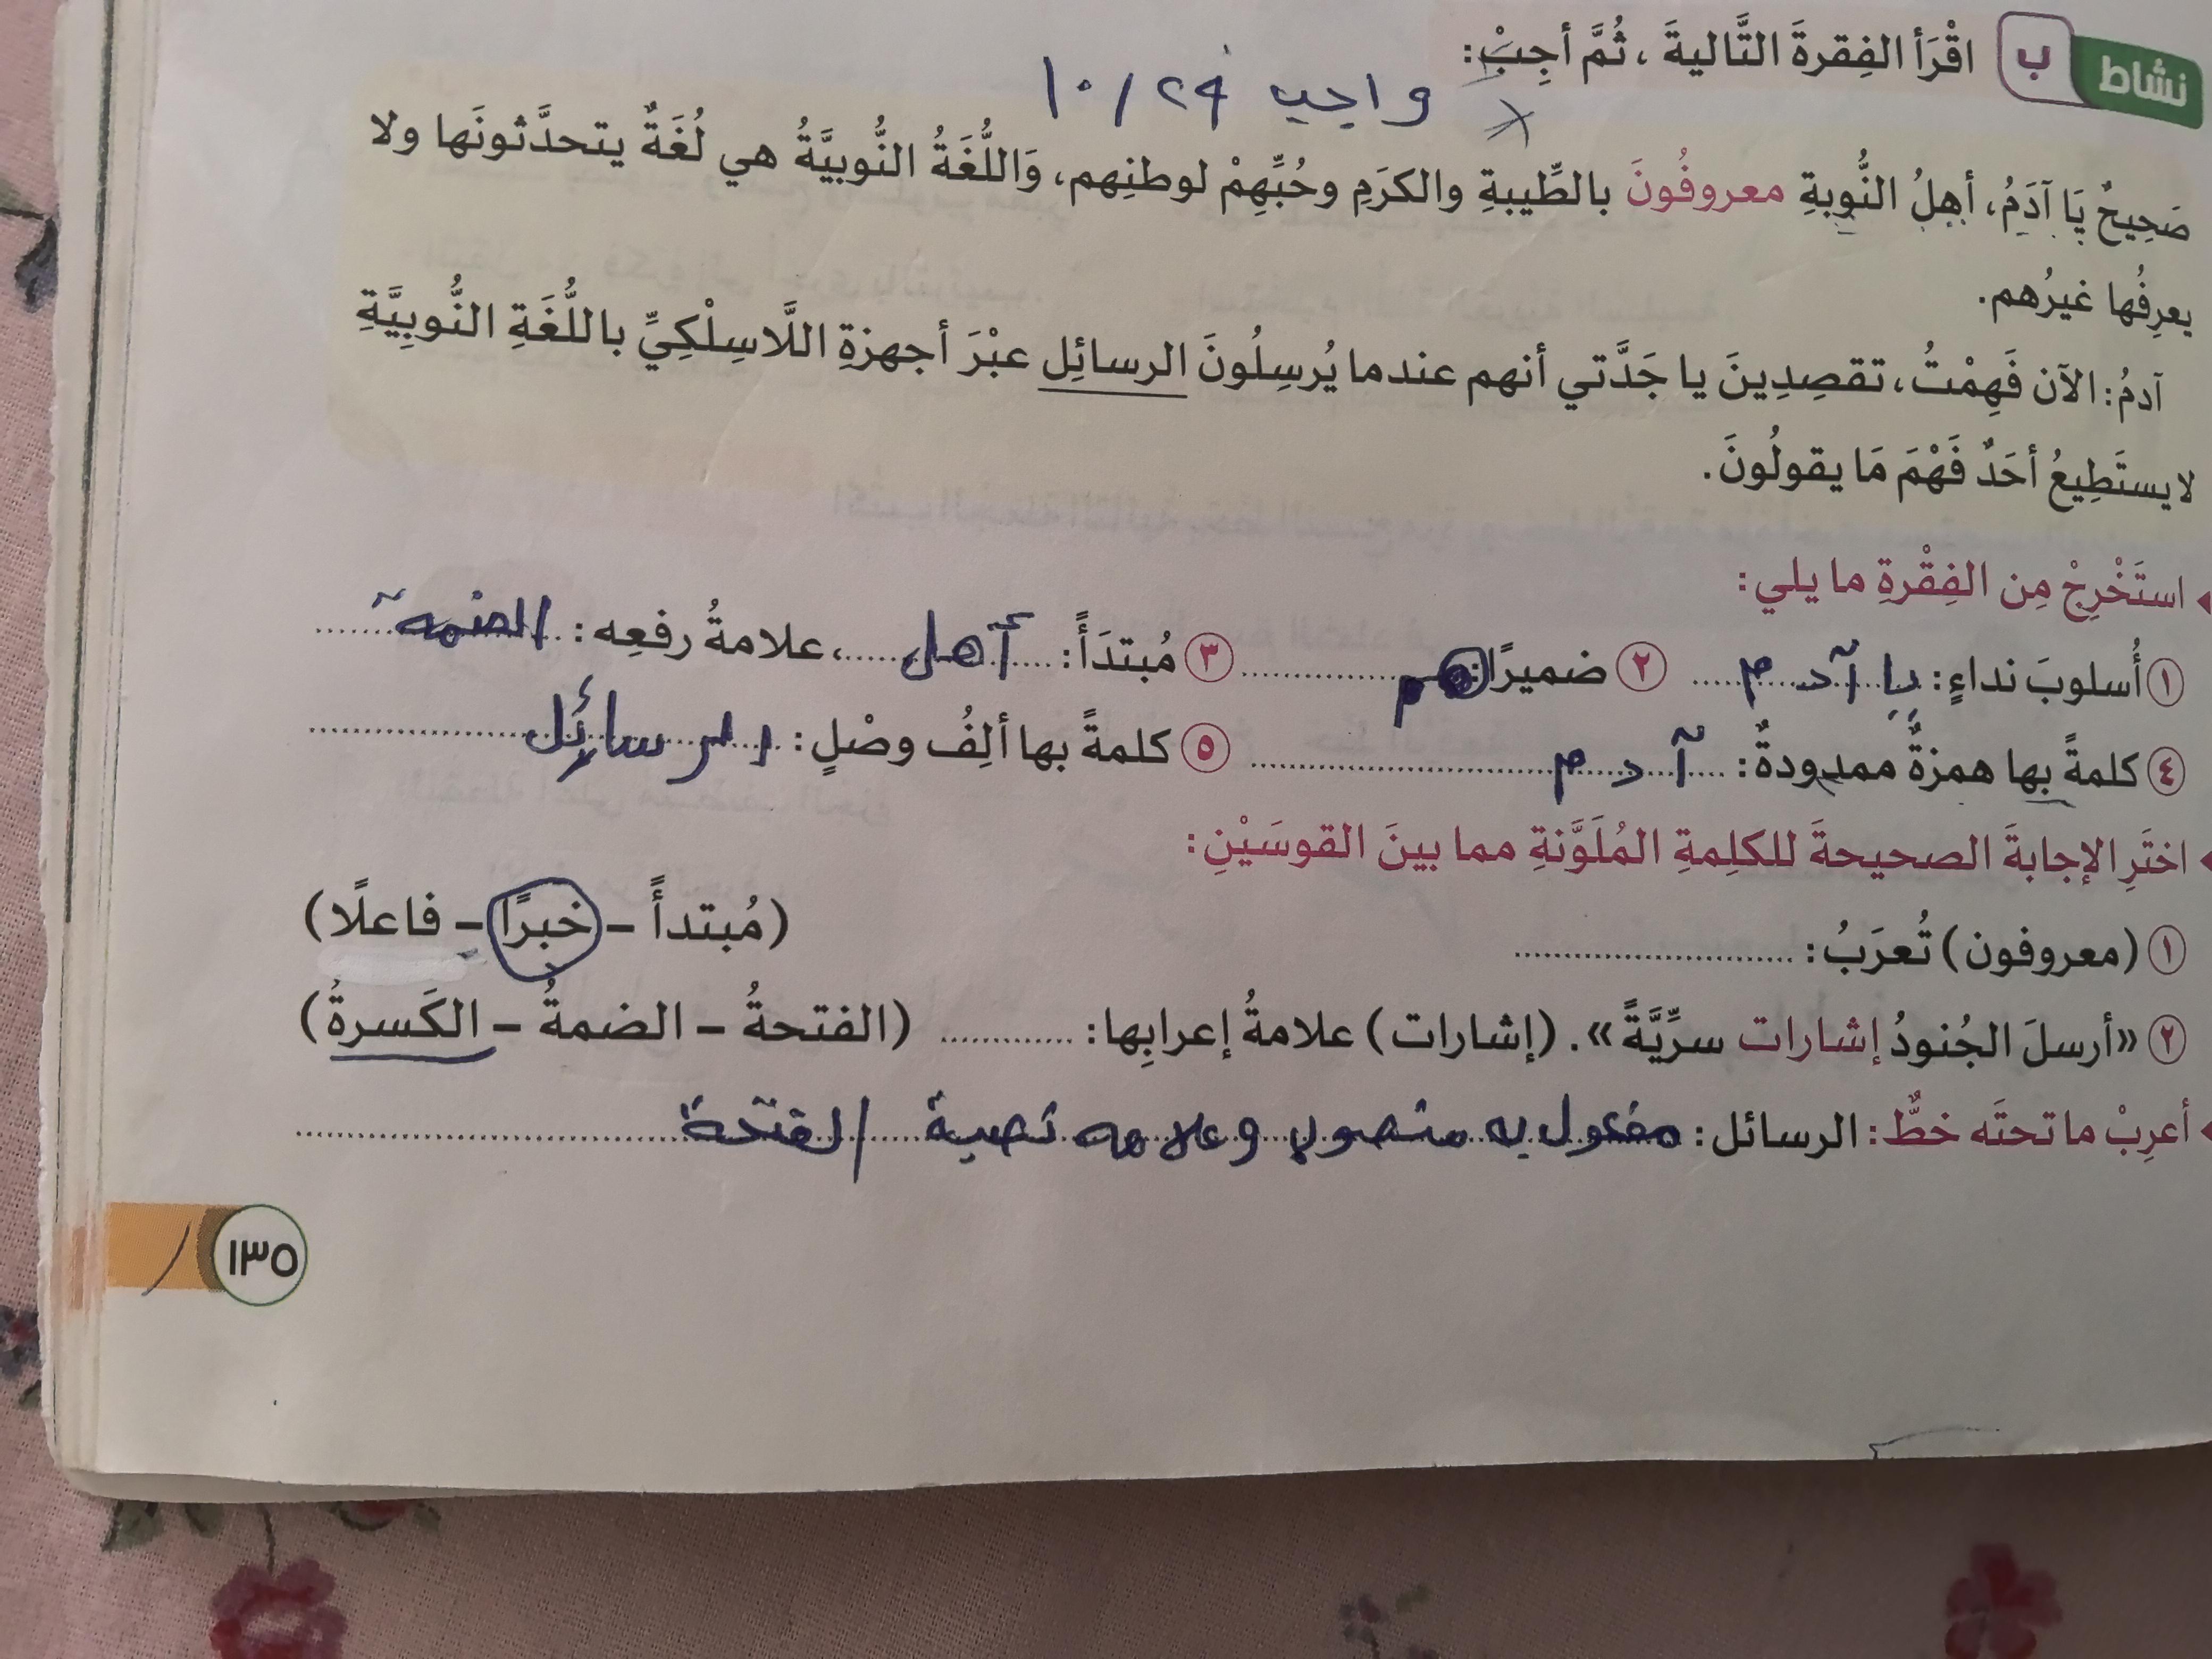 نشاط ب اقْرَأ الفِقرةَ التَّاليةَ ، ثُمَّ أجِبْ:
واجب ٢٩/١٠
صَحِيحٌ يَا آدَمُ، أهلُ النُّوبةِ معروفُونَ بالطِّيبةِ والكرَمِ وحُبِّهِمْ لوطنِهم، وَاللُّغَةُ النُّوبيَّةُ هي لُغَةٌ يتحدَّثونَها ولا
يعرِفُها غيرُهم.
آدمُ: الآن فَهِمْتُ، تقصِدِينَ يا جَدَّتي أنهم عندما يُرسِلُونَ الرسائِل عبْرَ أجهزةِ اللَّاسِلْكِيِّ باللُّغَةِ النُّوبِيَّةِ
لا يستَطِيعُ أحَدٌ فَهْمَ مَا يقولُونَ.
استَخْرِجْ مِن الفِقْرةِ ما يلي:
١ أُسلوبَ نداءٍ: يا آدم ٢ ضميرًا: هم ٣ مُبتدَأً: أهل ، علامةُ رفعِه: الضمة
٤ كلمةً بها همزةٌ ممدودةٌ: آدم ٥ كلمةً بها ألِفُ وصْلٍ: الرسائل
اختَرِ الإجابةَ الصحيحةَ للكلِمةِ المُلَوَّنةِ مما بينَ القوسَيْنِ:
١ (معروفون) تُعرَبُ: (مُبتدأً – خبرًا – فاعلًا)
٢ «أرسلَ الجُنودُ إشارات سرِّيَّةً». (إشارات) علامةُ إعرابِها: (الفتحةُ – الضمةُ – الكَسرةُ)
أعرِبْ ما تحتَه خطٌّ: الرسائل: مفعول به منصوب وعلامه نصبة الفتحة
١٣٥